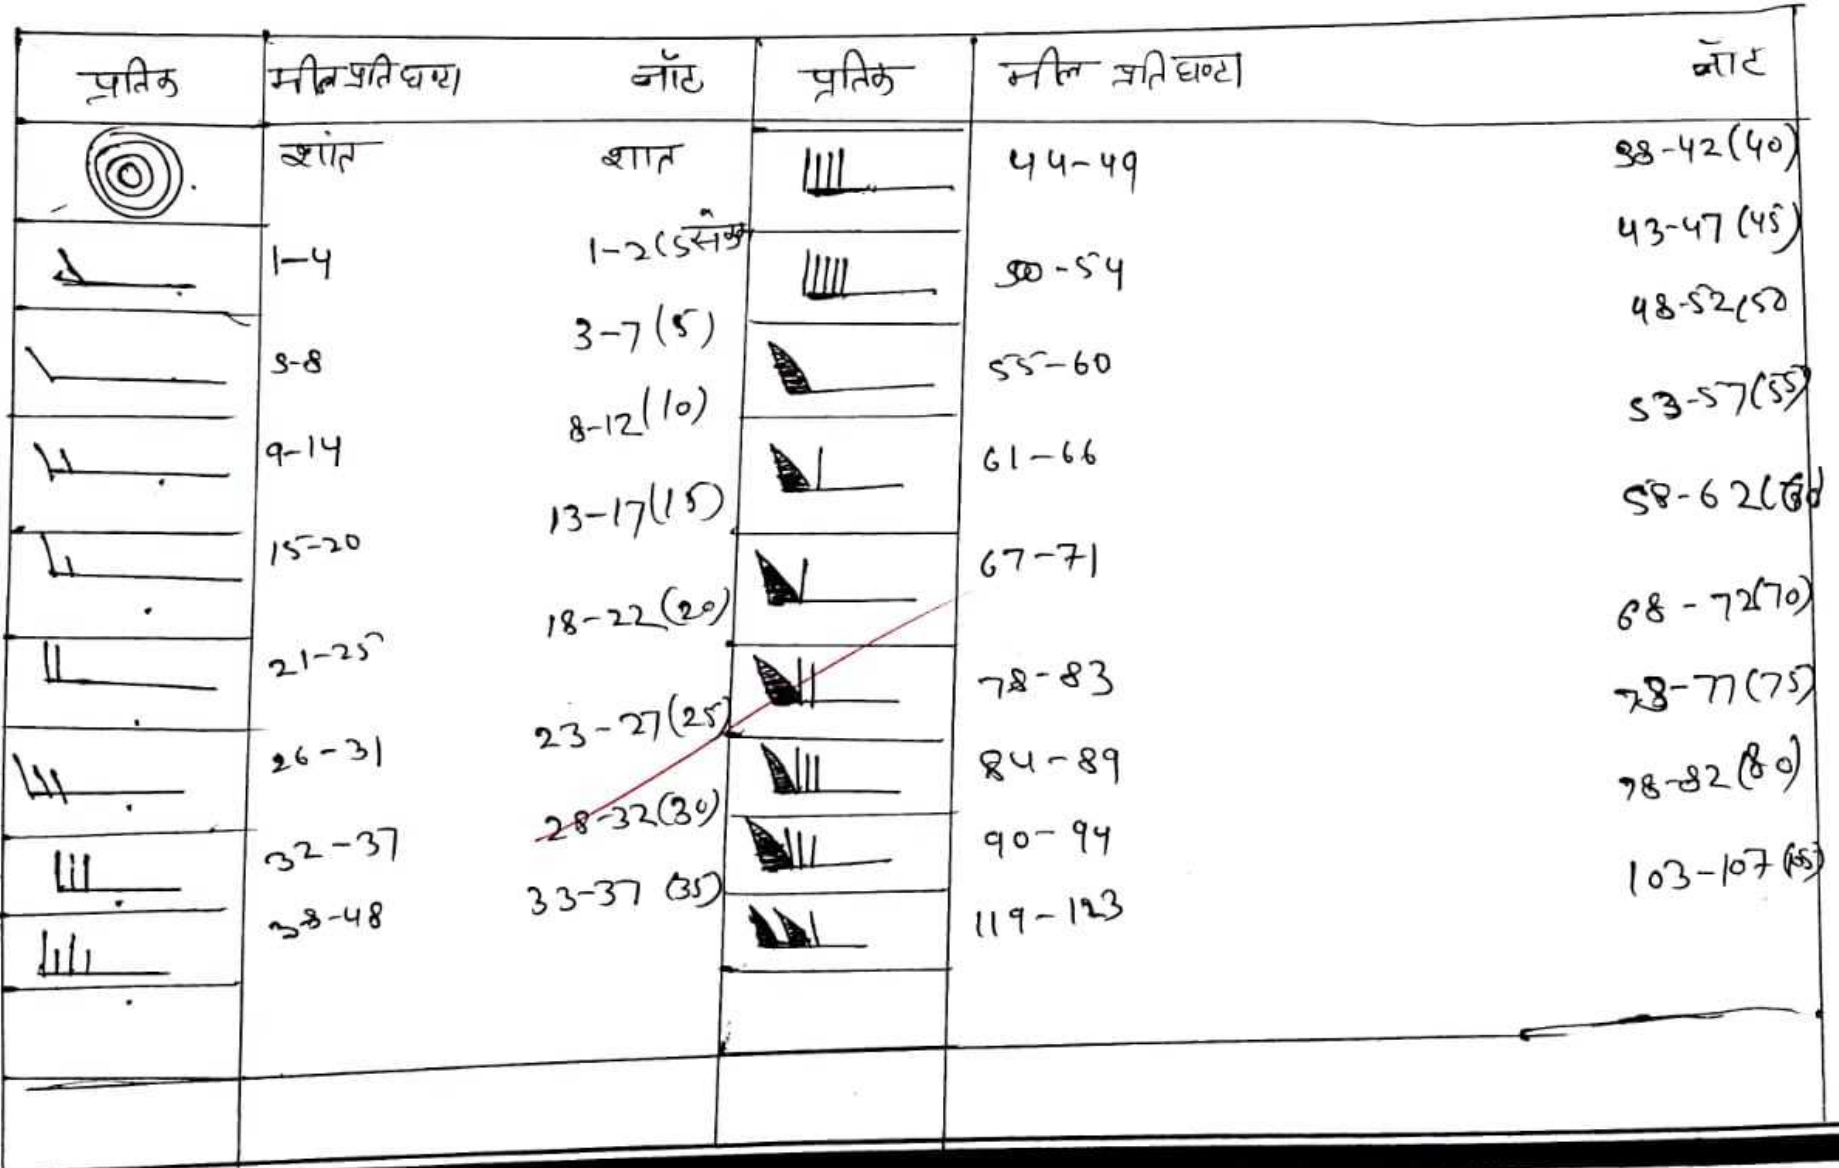 प्रतिक मील प्रति घण्टा नॉट प्रतिक मील प्रति घण्टा नॉट
शांत शात 44-49 38-42 (40)
1-4 1-2 (5 50-54 43-47 (45)
5-8 3-7 (5) 55-60 48-52 (50
9-14 8-12 (10) 61-66 53-57 (55)
15-20 13-17 (15) 67-71 58-62 (60
21-25 18-22 (20) 78-83 68-72 (70)
26-31 23-27 (25) 84-89 73-77 (75)
32-37 28-32 (30) 90-94 78-82 (80)
38-48 33-37 (35) 119-123 103-107 (105)